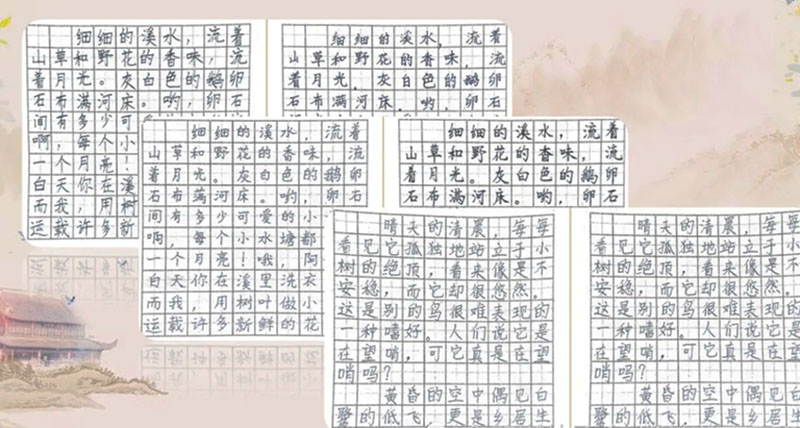 细细的溪水，流着
山草和野花的香味，流
着月光。灰白色的鹅卵
石布满河床。哟，卵石
间有多少可
啊，每个小
一个月亮！
白天你在溪
而我，用树
运载许多新
细细的溪水，流着
山草和野花的香味，流
着月光。灰白色的鹅卵
石布满河床。哟，卵石
细细的溪水，流着
山草和野花的香味，流
着月光。灰白色的鹅卵
石布满河床。哟，卵石
间有多少可爱的小
啊，每个小水塘都
一个月亮！哦，阿
白天你在溪里洗衣
而我，用树叶做小
运载许多新鲜的花
细细的溪水，流着
山草和野花的香味，流
着月光。灰白色的鹅卵
石布满河床。哟，卵石
晴天的清晨，每每
看见它孤独地站立于小
树的绝顶，看来像是不
安稳，而它却很悠然。
这是别的鸟很难表现的
一种嗜好。人们说它是
在望哨，可它真是在望
哨吗？
黄昏的空中偶见白
鹭的低飞，更是乡居生
晴天的清晨，每每
看见它孤独地站立于小
树的绝顶，看来像是不
安稳，而它却很悠然。
这是别的鸟很难表现的
一种嗜好。人们说它是
在望哨，可它真是在望
哨吗？
黄昏的空中偶见白
鹭的低飞，更是乡居生